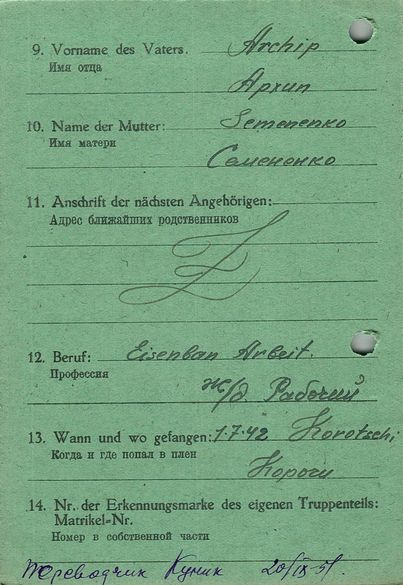 9. Vorname des Vaters. Archip
Имя отца
Архип
10. Name der Mutter: Semenenko
Имя матери
Семененко
11. Anschrift der nächsten Angehörigen:
Адрес ближайших родственников
12. Beruf: Eisenban Arbeit.
Профессия
ж/д Рабочий
13. Wann und wo gefangen: 1.7.42 Korotschi
Когда и где попал в плен
Корочи
14. Nr. der Erkennungsmarke des eigenen Truppenteils:
Matrikel-Nr.
Номер в собственной части
Переводчик Куник 20/IX-51.